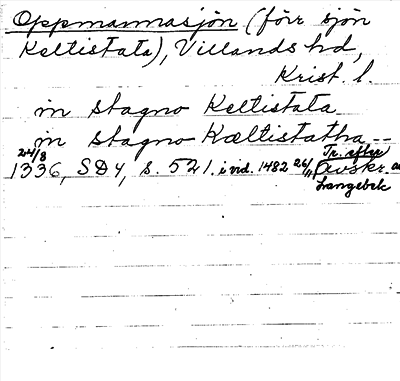 Oppmannasjön (förr sjön
Keltistata), Villands hd,
Krist. l.
in stagno Keltistata
in stagno Kæltistatha --
24/8 Tr. efter
1336, SD4, s. 521. i vid. 1482 26/11 Avskr. av
Langebek